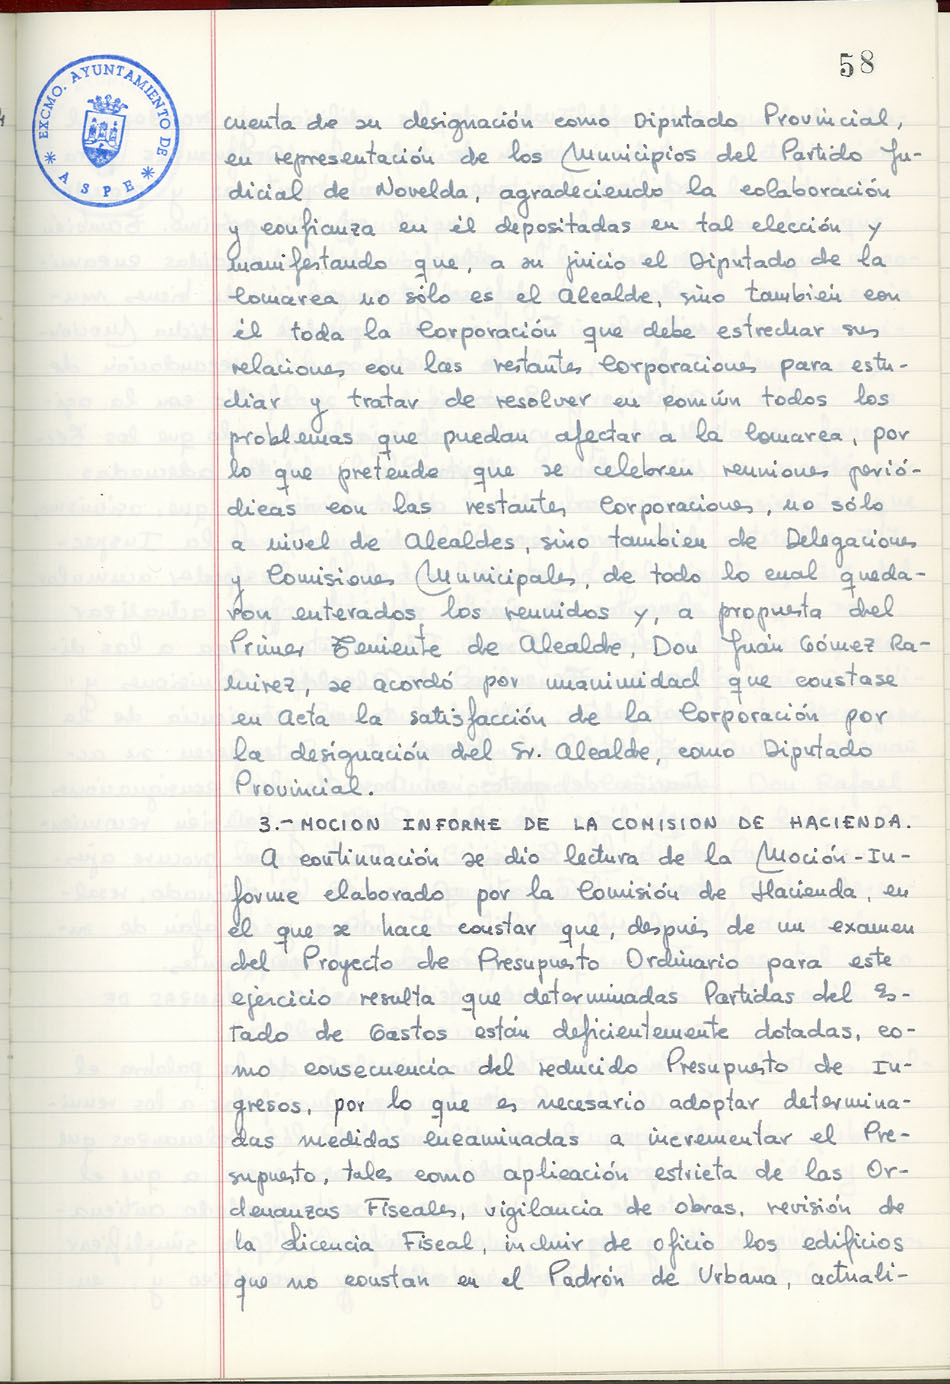 58
EXCMO. AYUNTAMIENTO DE
* ASPE *
cuenta de su designación como Diputado Provincial,
en representación de los Municipios del Partido Ju-
dicial de Novelda, agradeciendo la colaboración
y confianza en él depositadas en tal elección y
manifestando que, a su juicio el Diputado de la
Comarca no sólo es el Alcalde, sino también con
él toda la Corporación que debe estrechar sus
relaciones con las restantes Corporaciones para estu-
diar y tratar de resolver en común todos los
problemas que puedan afectar a la Comarca, por
lo que pretende que se celebren reuniones perió-
dicas con las restantes Corporaciones, no sólo
a nivel de Alcaldes, sino también de Delegaciones
y Comisiones Municipales, de todo lo cual queda-
ron enterados los reunidos y, a propuesta del
Primer Teniente de Alcalde, Don Juán Gómez Ra-
mirez, se acordó por unanimidad que constase
en Acta la satisfacción de la Corporación por
la designación del Sr. Alcalde, como Diputado
Provincial.
3.- MOCION INFORME DE LA COMISION DE HACIENDA.
A continuación se dio lectura de la Moción-In-
forme elaborado por la Comisión de Hacienda, en
el que se hace constar que, después de un examen
del Proyecto de Presupuesto Ordinario para este
ejercicio resulta que determinadas Partidas del Es-
tado de Gastos están deficientemente dotadas, co-
mo consecuencia del reducido Presupuesto de In-
gresos, por lo que es necesario adoptar determina-
das medidas encaminadas a incrementar el Pre-
supuesto, tales como aplicación estricta de las Or-
denanzas Fiscales, vigilancia de obras, revisión de
la Licencia Fiscal, incluir de oficio los edificios
que no constan en el Padrón de Urbana, actuali-